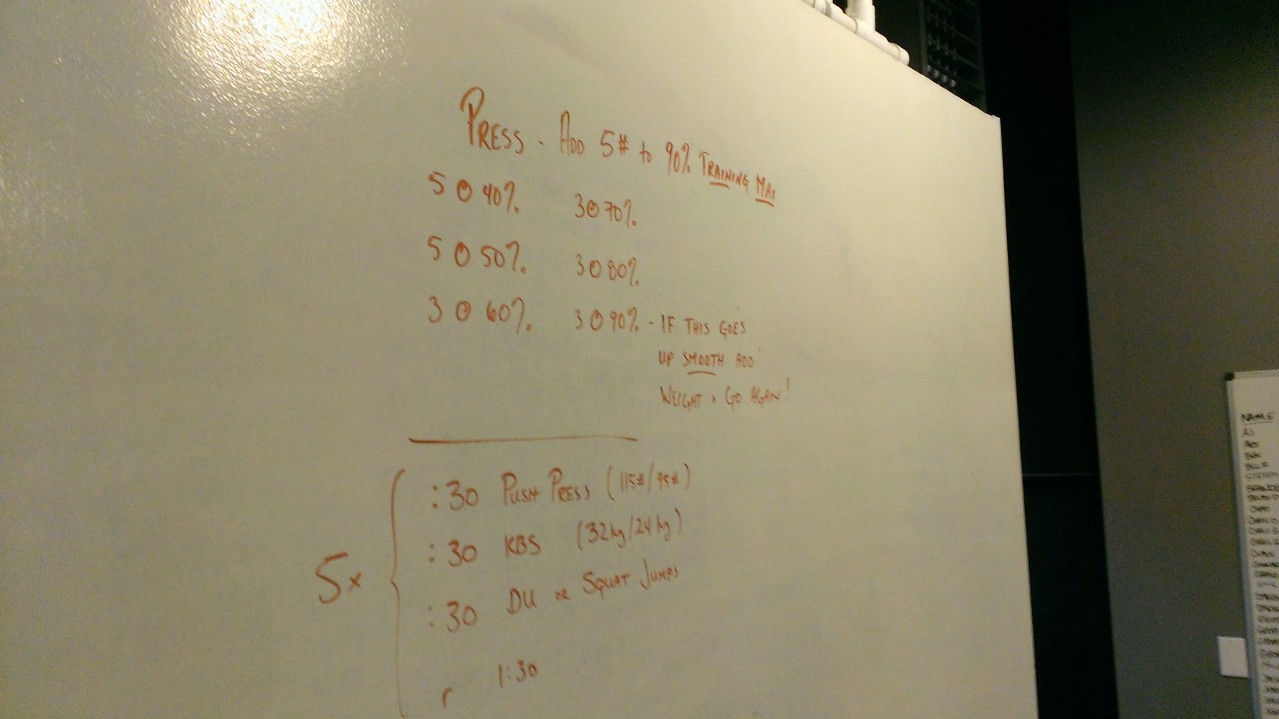 PRESS - ADD 5# to 90% TRAINING MAX
5 @ 40%   3 @ 70%
5 @ 50%   3 @ 80%
3 @ 60%   3 @ 90% - IF THIS GOES
UP SMOOTH ADD
WEIGHT + GO AGAIN!
5x
:30 PUSH PRESS (115#/95#)
:30 KBS (32kg/24kg)
:30 DU OR SQUAT JUMPS
r 1:30
NAME